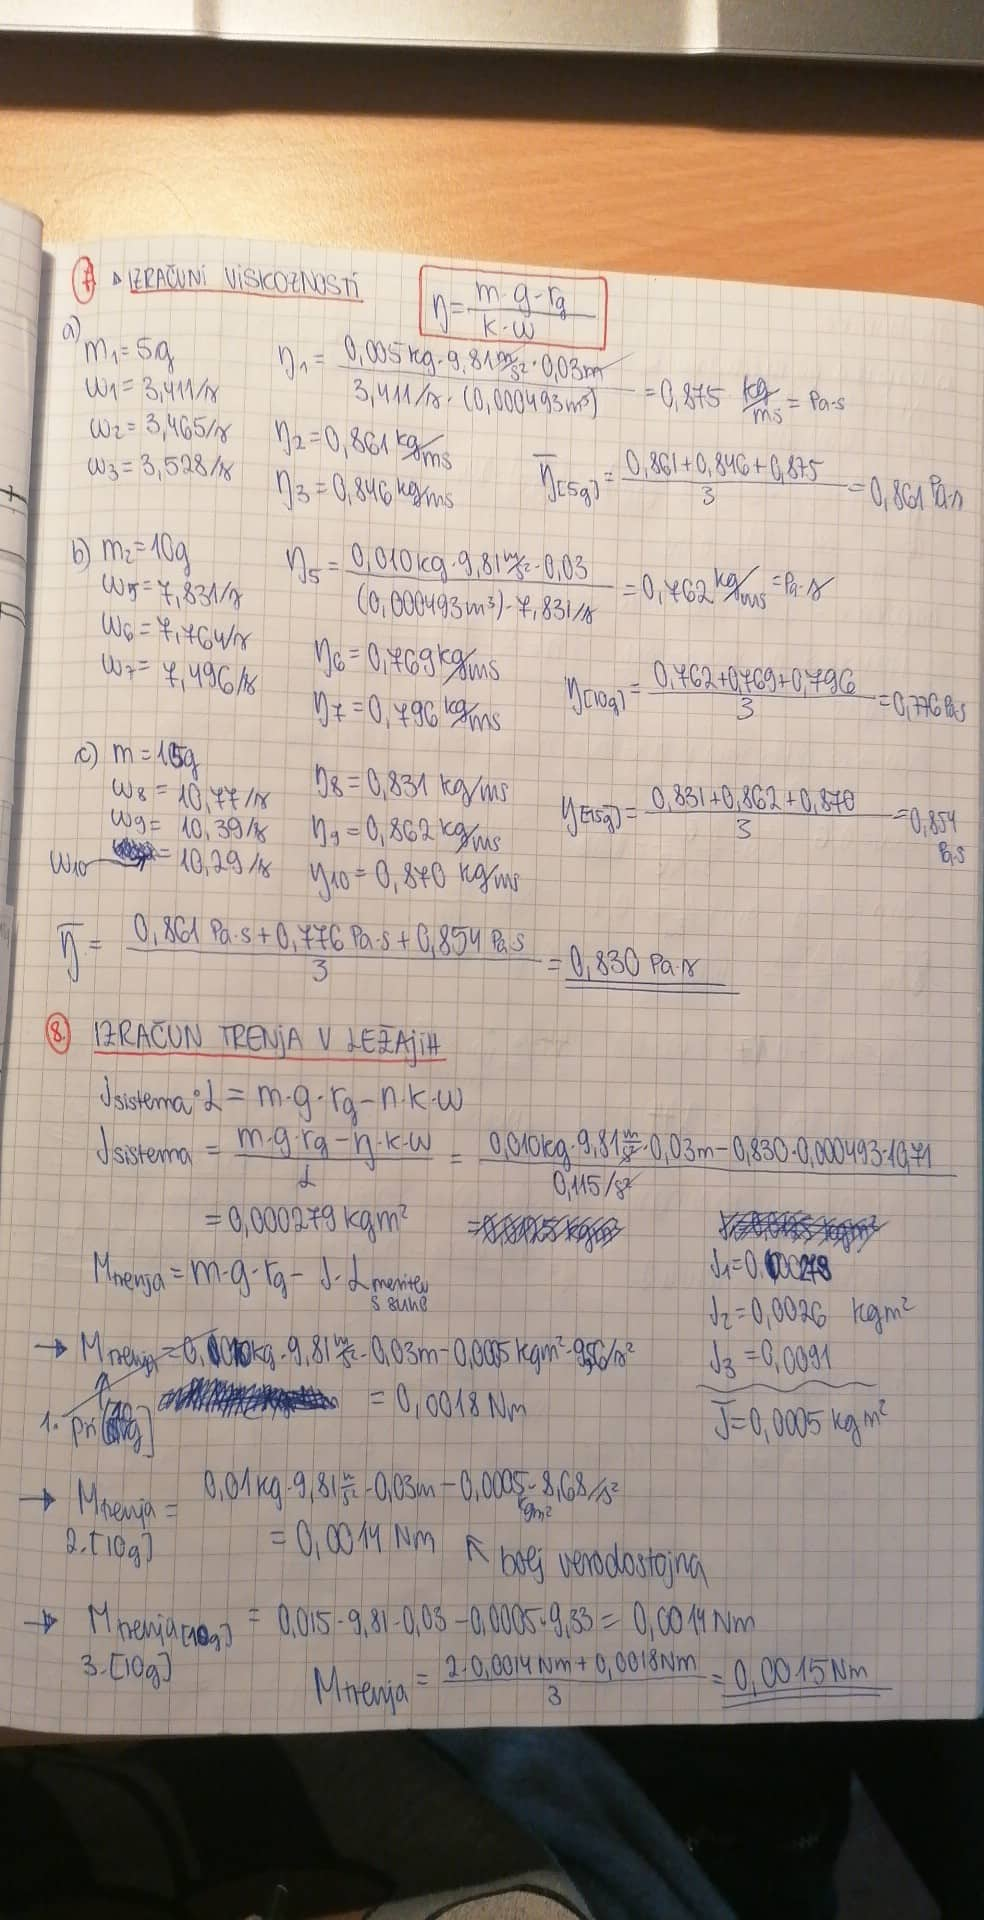 7. IZRAČUNI VISKOZNOSTI
η = m·g·rg / k·ω
a) m1 = 5g
ω1 = 3,411/s
ω2 = 3,465/s
ω3 = 3,528/s
η1 = 0,005 kg · 9,81 m/s² · 0,03 m / 3,411/s · (0,000493 m³) = 0,875 kg/ms = Pa·s
η2 = 0,861 kg/ms
η3 = 0,846 kg/ms
η̅[5g] = 0,861 + 0,846 + 0,875 / 3 = 0,861 Pa·s
b) m2 = 10g
ω5 = 7,831/s
ω6 = 7,764/s
ω7 = 7,496/s
η5 = 0,010 kg · 9,81 m/s² · 0,03 / (0,000493 m³) · 7,831/s = 0,762 kg/ms = Pa·s
η6 = 0,769 kg/ms
η7 = 0,796 kg/ms
η[10g] = 0,762 + 0,769 + 0,796 / 3 = 0,776 Pa·s
c) m = 15g
ω8 = 10,77/s
ω9 = 10,39/s
ω10 = 10,29/s
η8 = 0,831 kg/ms
η9 = 0,862 kg/ms
η10 = 0,870 kg/ms
η[15g] = 0,831 + 0,862 + 0,870 / 3 = 0,854 Pa·s
η̅ = 0,861 Pa·s + 0,776 Pa·s + 0,854 Pa·s / 3 = 0,830 Pa·s
8. IZRAČUN TRENJA V LEŽAJIH
Jsistema · α = m·g·rg − η·k·ω
Jsistema = m·g·rg − η·k·ω / α = 0,010 kg · 9,81 m/s² · 0,03 m − 0,830 · 0,000493 · / 0,115/s²
= 0,000279 kgm²
Mtrenja = m·g·rg − J·α
J2 = 0,0026 kgm²
J3 = 0,0091
J̅ = 0,0005 kgm²
→ Mtrenja = kg · 9,81 m/s² · 0,03 m − 0,0005 kgm² · 9,56/s²
= 0,0018 Nm
1. pri
→ Mtrenja = 0,01 kg · 9,81 m/s² · 0,03 m − 0,0005 kgm² · 8,68/s²
2. [10g]
= 0,0014 Nm ↖ bolj verodostojna
→ Mtrenja [10g] = 0,015 · 9,81 · 0,03 − 0,0005 · 9,33 = 0,0014 Nm
3. [10g]
Mtrenja = 2·0,0014 Nm + 0,0018 Nm / 3 = 0,0015 Nm